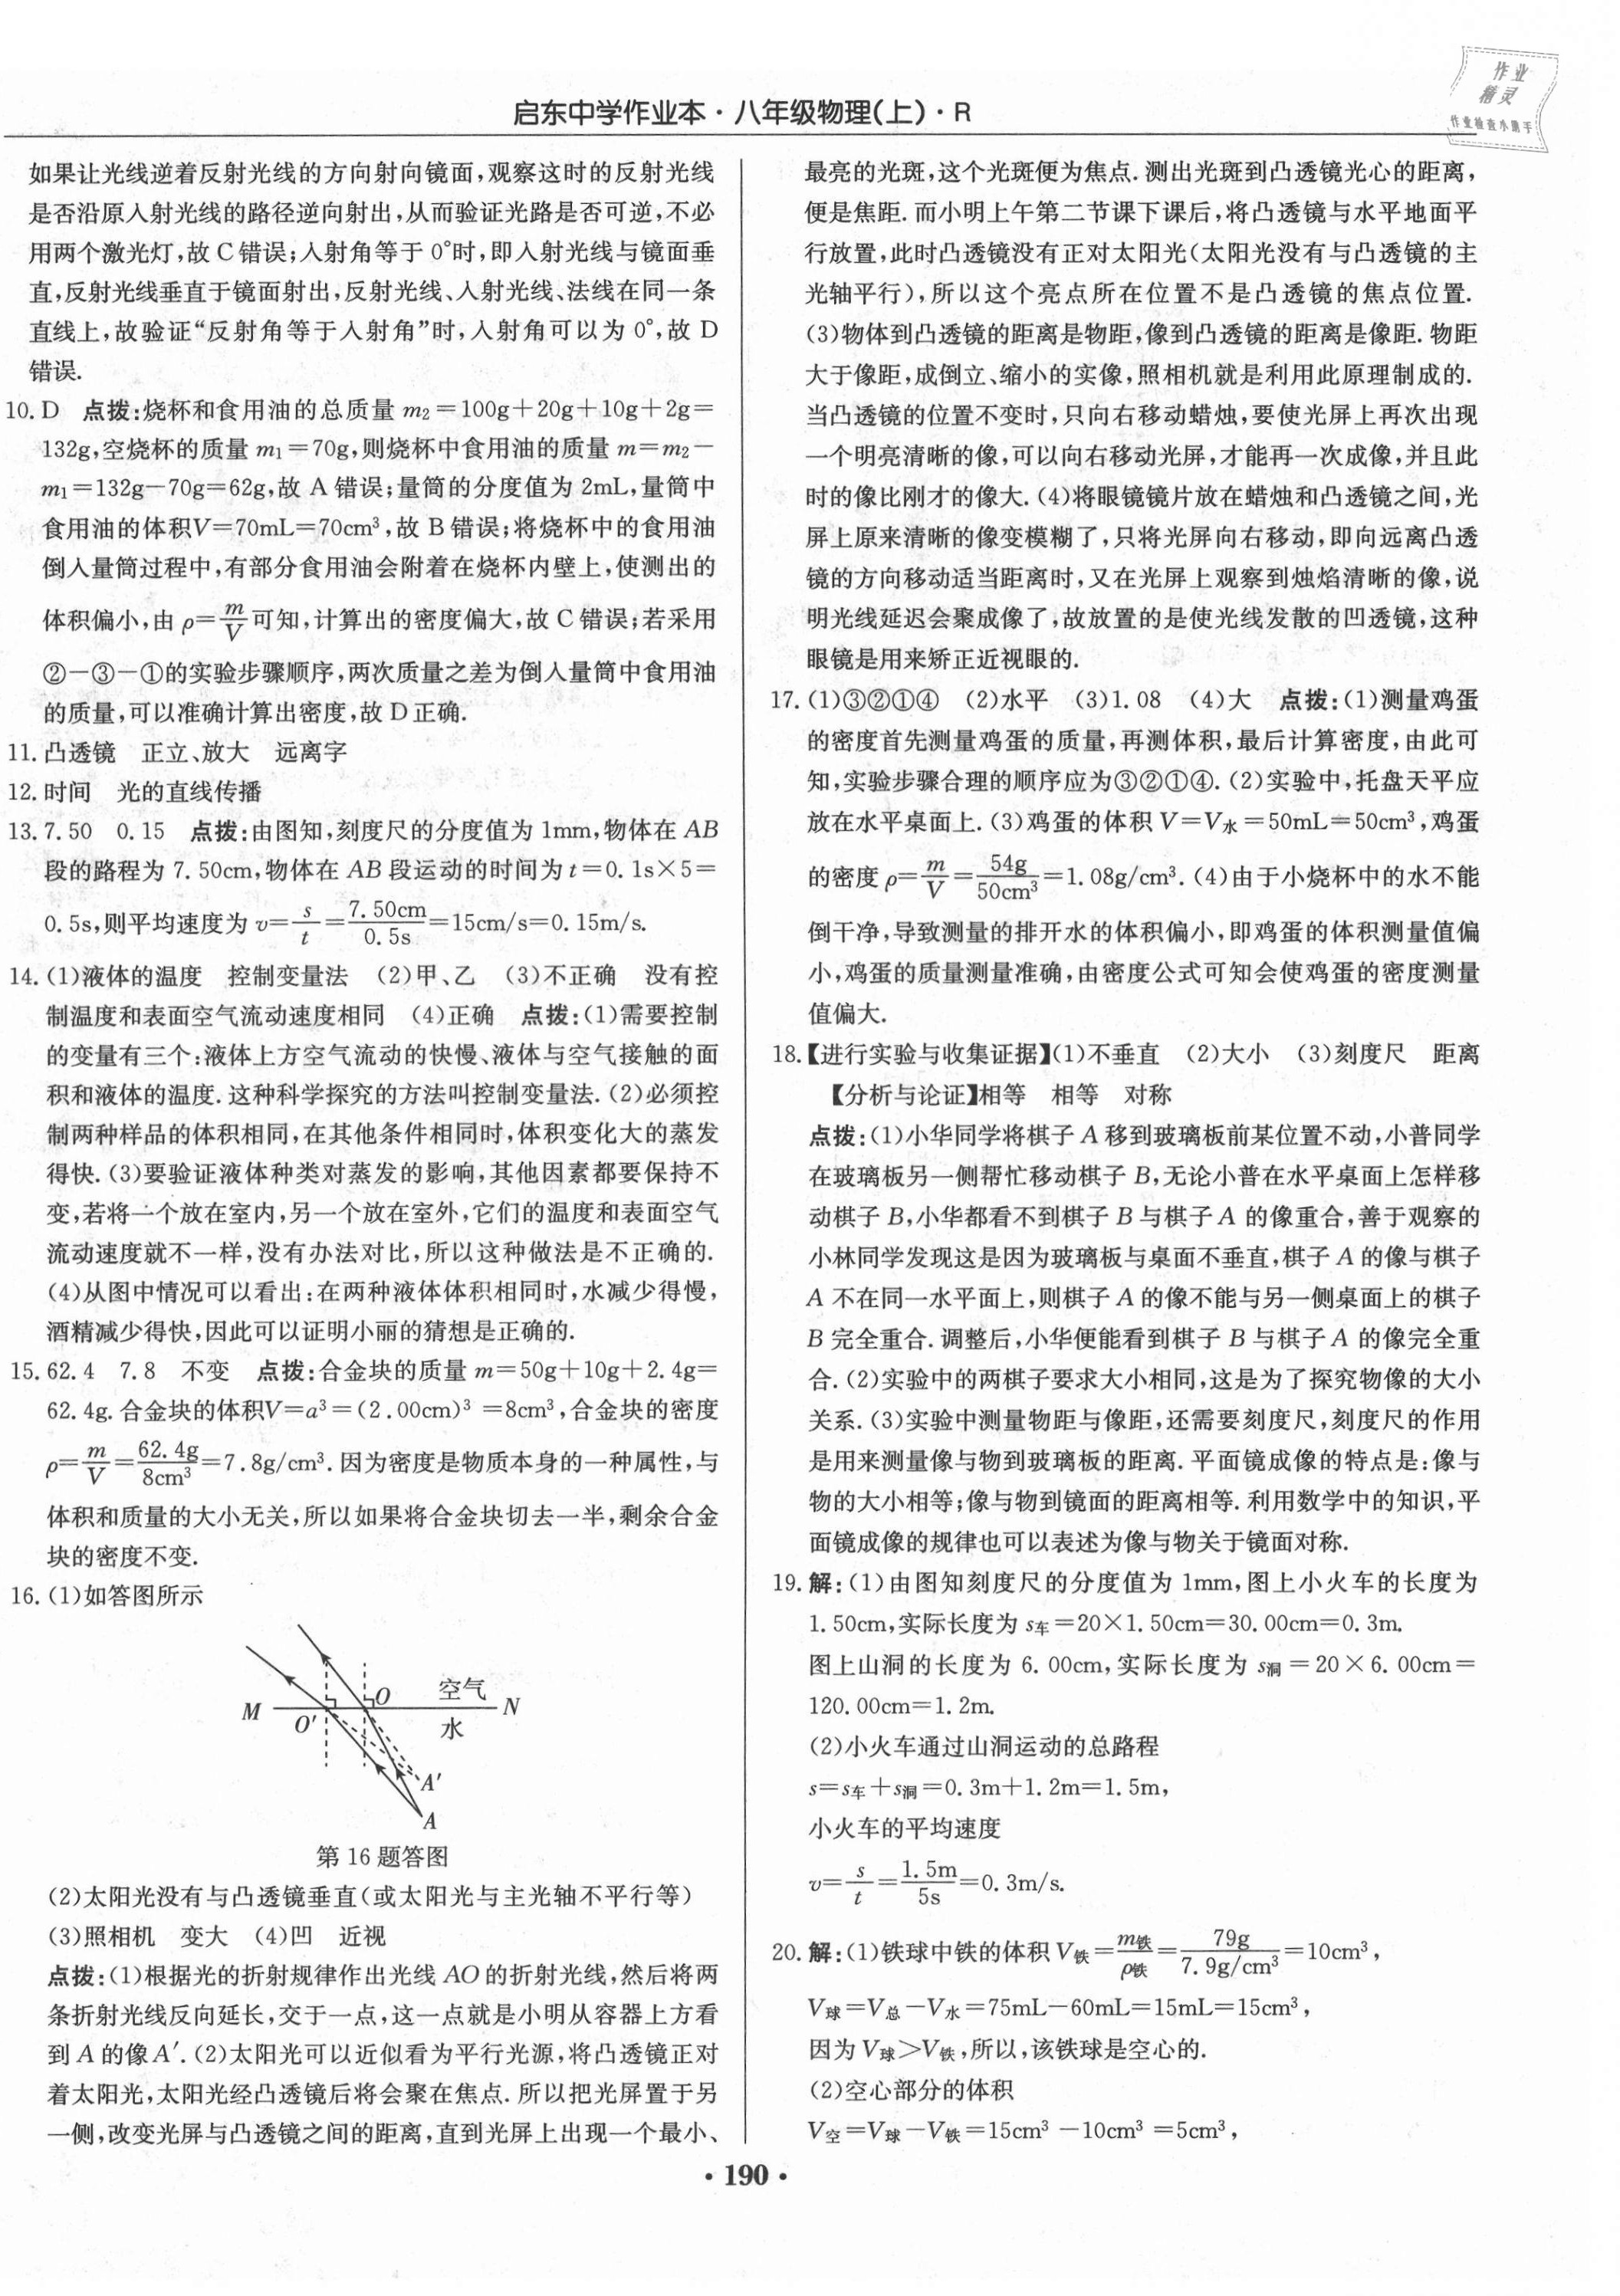 启东中学作业本·八年级物理(上)·R
作业
精灵
作业检查小助手
如果让光线逆着反射光线的方向射向镜面,观察这时的反射光线
是否沿原入射光线的路径逆向射出,从而验证光路是否可逆,不必
用两个激光灯,故C错误;入射角等于0°时,即入射光线与镜面垂
直,反射光线垂直于镜面射出,反射光线、入射光线、法线在同一条
直线上,故验证“反射角等于入射角”时,入射角可以为0°,故D
错误.
10. D 点拨:烧杯和食用油的总质量m₂=100g+20g+10g+2g=
132g,空烧杯的质量m₁=70g,则烧杯中食用油的质量m=m₂-
m₁=132g-70g=62g,故A错误;量筒的分度值为2mL,量筒中
食用油的体积V=70mL=70cm³,故B错误;将烧杯中的食用油
倒入量筒过程中,有部分食用油会附着在烧杯内壁上,使测出的
体积偏小,由ρ=m/V可知,计算出的密度偏大,故C错误;若采用
②-③-①的实验步骤顺序,两次质量之差为倒入量筒中食用油
的质量,可以准确计算出密度,故D正确.
11. 凸透镜 正立、放大 远离字
12. 时间 光的直线传播
13. 7.50 0.15 点拨:由图知,刻度尺的分度值为1mm,物体在AB
段的路程为7.50cm,物体在AB段运动的时间为t=0.1s×5=
0.5s,则平均速度为v=s/t=7.50cm/0.5s=15cm/s=0.15m/s.
14. (1)液体的温度 控制变量法 (2)甲、乙 (3)不正确 没有控
制温度和表面空气流动速度相同 (4)正确 点拨:(1)需要控制
的变量有三个:液体上方空气流动的快慢、液体与空气接触的面
积和液体的温度.这种科学探究的方法叫控制变量法.(2)必须控
制两种样品的体积相同,在其他条件相同时,体积变化大的蒸发
得快.(3)要验证液体种类对蒸发的影响,其他因素都要保持不
变,若将一个放在室内,另一个放在室外,它们的温度和表面空气
流动速度就不一样,没有办法对比,所以这种做法是不正确的.
(4)从图中情况可以看出:在两种液体体积相同时,水减少得慢,
酒精减少得快,因此可以证明小丽的猜想是正确的.
15. 62.4 7.8 不变 点拨:合金块的质量m=50g+10g+2.4g=
62.4g.合金块的体积V=a³=(2.00cm)³=8cm³,合金块的密度
ρ=m/V=62.4g/8cm³=7.8g/cm³.因为密度是物质本身的一种属性,与
体积和质量的大小无关,所以如果将合金块切去一半,剩余合金
块的密度不变.
16. (1)如答图所示
M O′ O 空气 N
水
A′
A
第16题答图
(2)太阳光没有与凸透镜垂直(或太阳光与主光轴不平行等)
(3)照相机 变大 (4)凹 近视
点拨:(1)根据光的折射规律作出光线AO的折射光线,然后将两
条折射光线反向延长,交于一点,这一点就是小明从容器上方看
到A的像A′.(2)太阳光可以近似看为平行光源,将凸透镜正对
着太阳光,太阳光经凸透镜后将会聚在焦点.所以把光屏置于另
一侧,改变光屏与凸透镜之间的距离,直到光屏上出现一个最小、
最亮的光斑,这个光斑便为焦点.测出光斑到凸透镜光心的距离,
便是焦距.而小明上午第二节课下课后,将凸透镜与水平地面平
行放置,此时凸透镜没有正对太阳光(太阳光没有与凸透镜的主
光轴平行),所以这个亮点所在位置不是凸透镜的焦点位置.
(3)物体到凸透镜的距离是物距,像到凸透镜的距离是像距.物距
大于像距,成倒立、缩小的实像,照相机就是利用此原理制成的.
当凸透镜的位置不变时,只向右移动蜡烛,要使光屏上再次出现
一个明亮清晰的像,可以向右移动光屏,才能再一次成像,并且此
时的像比刚才的像大.(4)将眼镜镜片放在蜡烛和凸透镜之间,光
屏上原来清晰的像变模糊了,只将光屏向右移动,即向远离凸透
镜的方向移动适当距离时,又在光屏上观察到烛焰清晰的像,说
明光线延迟会聚成像了,故放置的是使光线发散的凹透镜,这种
眼镜是用来矫正近视眼的.
17. (1)③②①④ (2)水平 (3)1.08 (4)大 点拨:(1)测量鸡蛋
的密度首先测量鸡蛋的质量,再测体积,最后计算密度,由此可
知,实验步骤合理的顺序应为③②①④.(2)实验中,托盘天平应
放在水平桌面上.(3)鸡蛋的体积V=V水=50mL=50cm³,鸡蛋
的密度ρ=m/V=54g/50cm³=1.08g/cm³.(4)由于小烧杯中的水不能
倒干净,导致测量的排开水的体积偏小,即鸡蛋的体积测量值偏
小,鸡蛋的质量测量准确,由密度公式可知会使鸡蛋的密度测量
值偏大.
18.【进行实验与收集证据】(1)不垂直 (2)大小 (3)刻度尺 距离
【分析与论证】相等 相等 对称
点拨:(1)小华同学将棋子A移到玻璃板前某位置不动,小普同学
在玻璃板另一侧帮忙移动棋子B,无论小普在水平桌面上怎样移
动棋子B,小华都看不到棋子B与棋子A的像重合,善于观察的
小林同学发现这是因为玻璃板与桌面不垂直,棋子A的像与棋子
A不在同一水平面上,则棋子A的像不能与另一侧桌面上的棋子
B完全重合.调整后,小华便能看到棋子B与棋子A的像完全重
合.(2)实验中的两棋子要求大小相同,这是为了探究物像的大小
关系.(3)实验中测量物距与像距,还需要刻度尺,刻度尺的作用
是用来测量像与物到玻璃板的距离.平面镜成像的特点是:像与
物的大小相等;像与物到镜面的距离相等.利用数学中的知识,平
面镜成像的规律也可以表述为像与物关于镜面对称.
19. 解:(1)由图知刻度尺的分度值为1mm,图上小火车的长度为
1.50cm,实际长度为s车=20×1.50cm=30.00cm=0.3m.
图上山洞的长度为6.00cm,实际长度为s洞=20×6.00cm=
120.00cm=1.2m.
(2)小火车通过山洞运动的总路程
s=s车+s洞=0.3m+1.2m=1.5m,
小火车的平均速度
v=s/t=1.5m/5s=0.3m/s.
20. 解:(1)铁球中铁的体积V铁=m铁/ρ铁=79g/7.9g/cm³=10cm³,
V球=V总-V水=75mL-60mL=15mL=15cm³,
因为V球>V铁,所以,该铁球是空心的.
(2)空心部分的体积
V空=V球-V铁=15cm³-10cm³=5cm³,
·190·